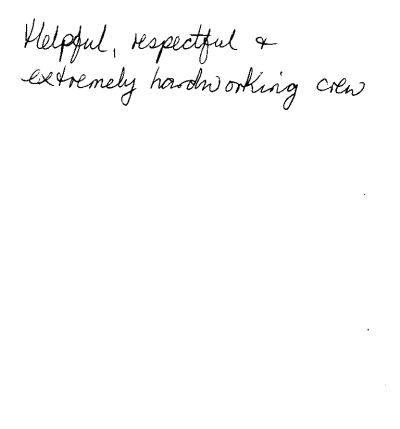 Helpful, respectful &
extremely hardworking crew